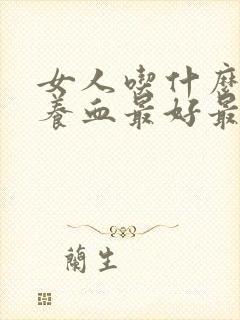 女人喫什麼
養血最好最
蘭生